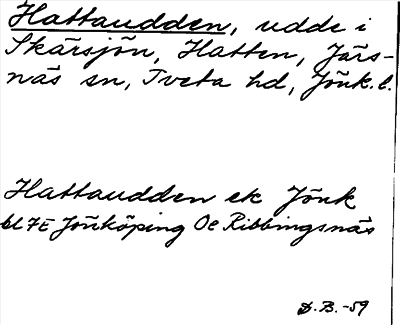 Hattaudden, udde i
Skärsjön, Hatten, Järs-
näs sn, Tveta hd, Jönk. l.
Hattaudden ek Jönk
bl 7E Jönköping Oe Ribbingsnäs
D.B. -59